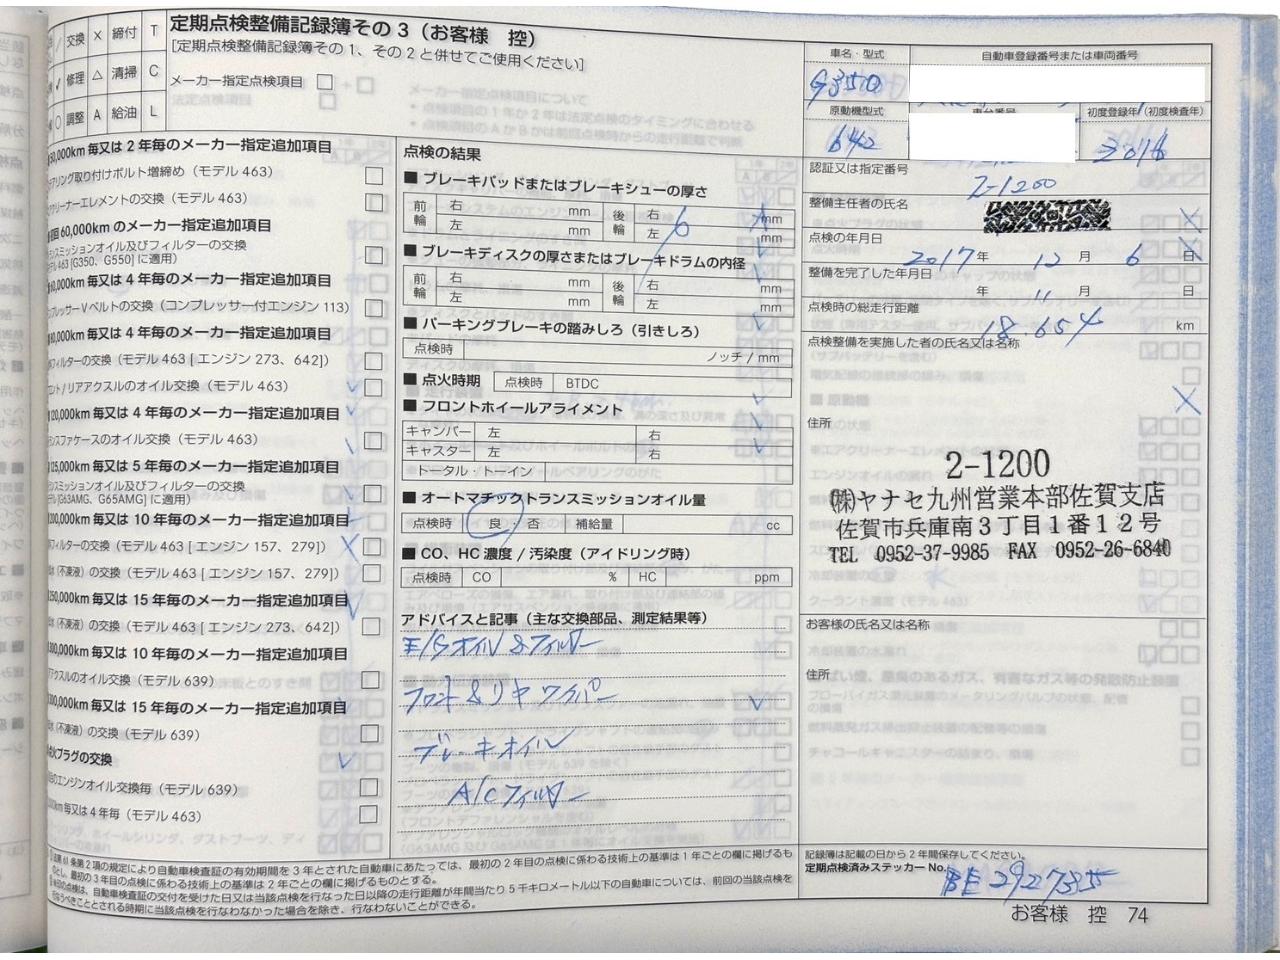 定期点検整備記録簿その３（お客様　控）
[定期点検整備記録簿その１、その２と併せてご使用ください]
/ 交換 X 締付 T
修理 △ 清掃 C
調整 A 給油 L
メーカー指定点検項目
車名・型式
G350
自動車登録番号または車両番号
原動機型式
642
初度登録年/（初度検査年）
2016
認証又は指定番号
2-1200
整備主任者の氏名
点検の年月日
2017年 12月 6日
整備を完了した年月日
年 11月 日
点検時の総走行距離
18.654 km
点検整備を実施した者の氏名又は名称
住所
2-1200
㈱ヤナセ九州営業本部佐賀支店
佐賀市兵庫南３丁目１番１２号
TEL 0952-37-9985 FAX 0952-26-6840
お客様の氏名又は名称
住所
記録簿は記載の日から２年間保存してください。
定期点検済みステッカー No. BE 2927335
0,000km 毎又は 2 年毎のメーカー指定追加項目
アリング取り付けボルト増締め（モデル 463）
アクリーナーエレメントの交換（モデル 463）
回 60,000km のメーカー指定追加項目
ンスミッションオイル及びフィルターの交換
ル 463 [G350、G550] に適用）
0,000km 毎又は 4 年毎のメーカー指定追加項目
プレッサー V ベルトの交換（コンプレッサー付エンジン 113）
80,000km 毎又は 4 年毎のメーカー指定追加項目
フィルターの交換（モデル 463 [ エンジン 273、642]）
ント / リアアクスルのオイル交換（モデル 463）
120,000km 毎又は 4 年毎のメーカー指定追加項目
ンスファケースのオイル交換（モデル 463）
125,000km 毎又は 5 年毎のメーカー指定追加項目
ンスミッションオイル及びフィルターの交換
ル [G63AMG、G65AMG] に適用）
200,000km 毎又は 10 年毎のメーカー指定追加項目
フィルターの交換（モデル 463 [ エンジン 157、279]）
水（不凍液）の交換（モデル 463 [ エンジン 157、279]）
250,000km 毎又は 15 年毎のメーカー指定追加項目
水（不凍液）の交換（モデル 463 [ エンジン 273、642]）
00,000km 毎又は 10 年毎のメーカー指定追加項目
アクスルのオイル交換（モデル 639）
00,000km 毎又は 15 年毎のメーカー指定追加項目
水（不凍液）の交換（モデル 639）
火プラグの交換
のエンジンオイル交換毎（モデル 639）
km 毎又は 4 年毎（モデル 463）
点検の結果
■ ブレーキパッドまたはブレーキシューの厚さ
前輪 右 mm 後輪 右 6 mm
左 mm 左
■ ブレーキディスクの厚さまたはブレーキドラムの内径
前輪 右 mm 後輪 右 mm
左 mm 左 mm
■ パーキングブレーキの踏みしろ（引きしろ）
点検時 ノッチ / mm
■ 点火時期 点検時 BTDC
■ フロントホイールアライメント
キャンバー 左 右
キャスター 左 右
トータル・トーイン
■ オートマチックトランスミッションオイル量
点検時 良・否 補給量 cc
■ CO、HC 濃度 / 汚染度（アイドリング時）
点検時 CO % HC ppm
アドバイスと記事（主な交換部品、測定結果等）
E/Gオイル＆フィルター
フロント＆リヤワイパー
ブレーキオイル
A/Cフィルター
法第 61 条第 2 項の規定により自動車検査証の有効期間を 3 年とされた自動車にあたっては、最初の 2 年目の点検に係わる技術上の基準は 1 年ごとの欄に掲げるもの
とし、最初の 3 年目の点検に係わる技術上の基準は 2 年ごとの欄に掲げるものとする。
の点検は、自動車検査証の交付を受けた日又は当該点検を行なった日以降の走行距離が年間当たり 5 千キロメートル以下の自動車については、前回の当該点検を
行なうべきこととされる時期に当該点検を行なわなかった場合を除き、行なわないことができる。
お客様　控　74